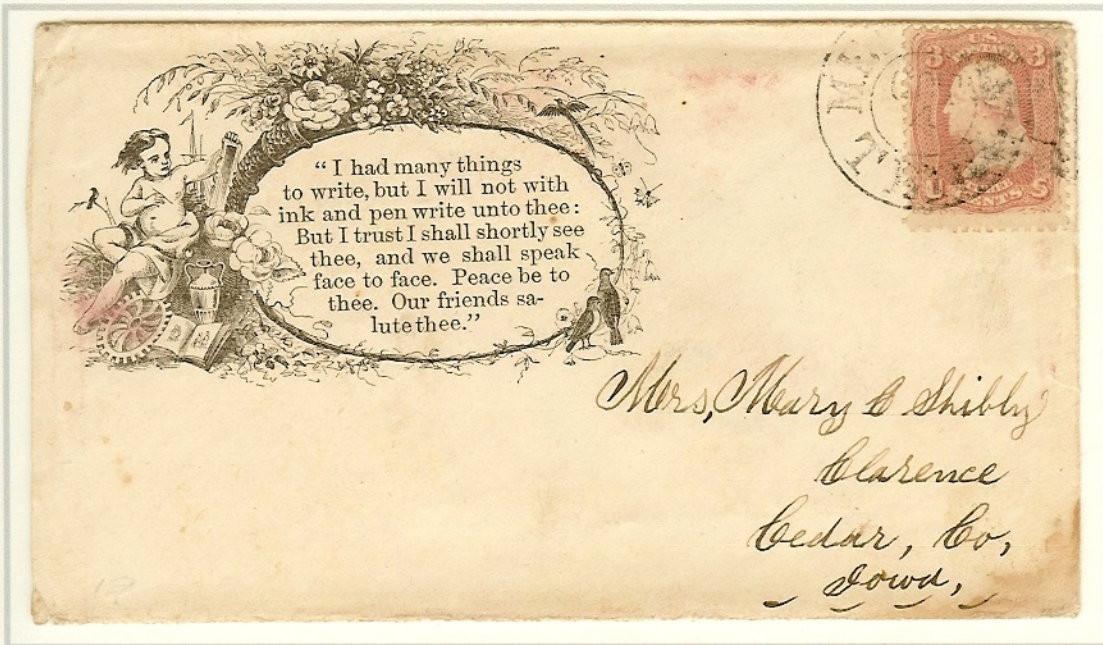 “ I had many things
to write, but I will not with
ink and pen write unto thee:
But I trust I shall shortly see
thee, and we shall speak
face to face. Peace be to
thee. Our friends sa-
lute thee.”
U.S.
3 3
U S
CENTS
Mrs, Mary C Shibly
Clarence
Cedar, Co,
Iowa,